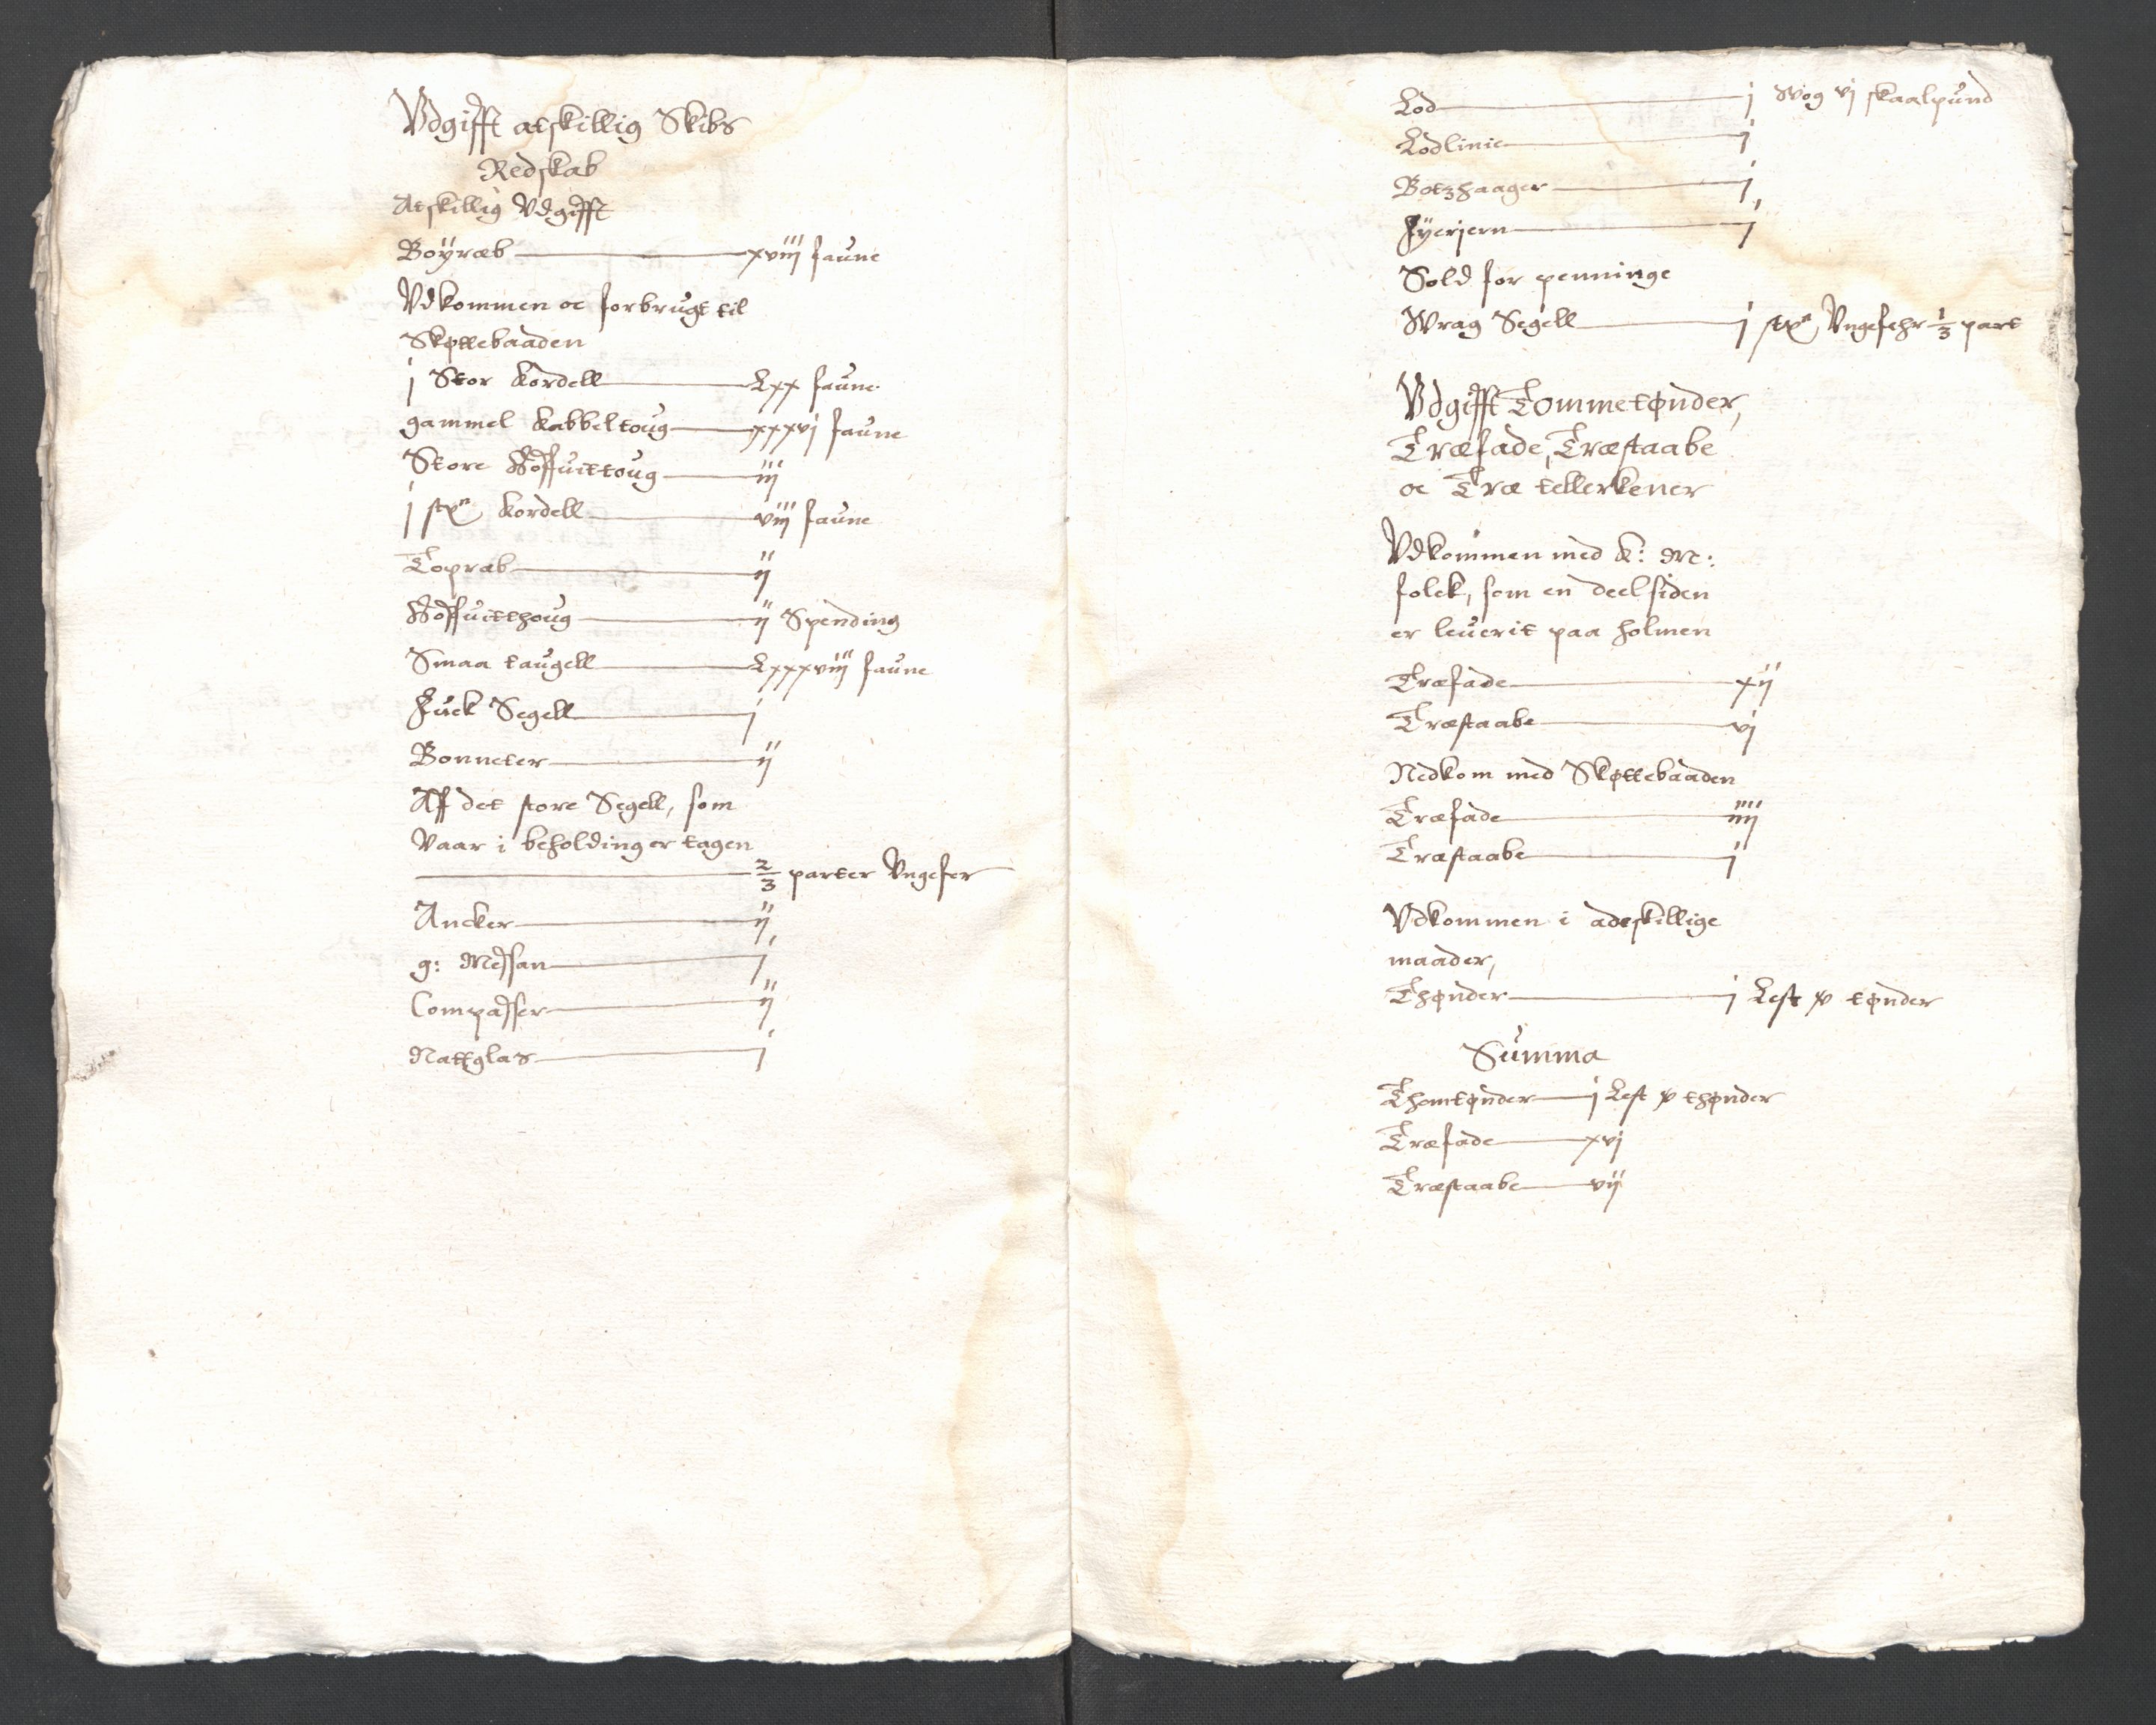 Vdgifft atskillig Skibs
Redskab
Atskillig Vdgifft
Boÿræb xviij faune
Vdkommen oc forbrugt til
Skøttebaaden
j Stor Kordell Lxx faune
gammel Kabbeltoug xxxvj faune
Store Hoffuittoug iij
j Kordell viij faune
Topræb ij
Hoffuitthoug ij Spending
Smaa taugell Lxxxviij faune
Fuck Segell j
Bonneter ij
Aff det store Segell, som
Vaar i beholding er tagen
2/3 parter Vngefer
Ancker ij
g: Messan j
Compasser ij
Nattglas j
Lod j Wog vj skaalpund
Lodlinie j
Botzhaager j
Fÿerjern j
Sold for penninge
Wrag Segell j Vngefehr 1/3 part
Vdgifft Tommetønder,
Træfade, Træstaabe
oc Træ tellerkener
Vdkommen med K: Mt:
folck, som en deel siden
er leuerit paa holmen
Træfade xij
Træstaabe vj
Nedkom med Skøttebaaden
Træfade iiij
Træstaabe j
Vdkommen i adtskillige
maader,
Thønder j Lest v tønder
Summa
Thomtønder j Lest v thønder
Træfade xvj
Træstaabe vij